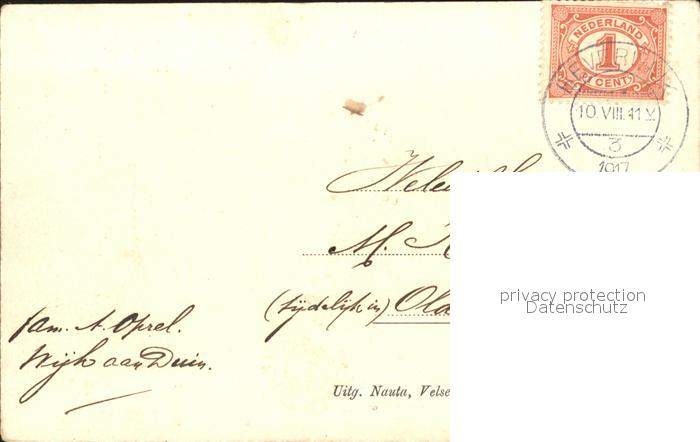 NEDERLAND
1
CENT
10.VIII.11V
3
1917
M.
(tijdelijk in)
fam. A. Oprel.
Wijk aan Duin.
Uitg. Nauta, Velse
privacy protection
Datenschutz